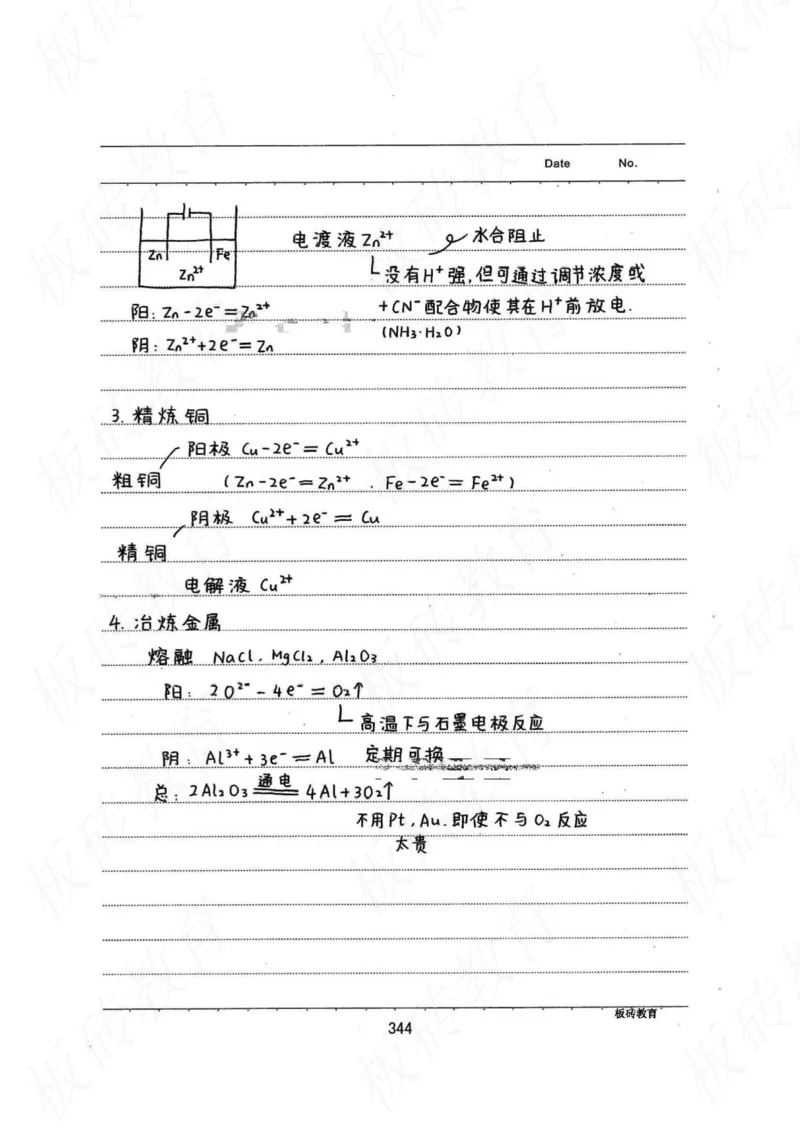 Date No.
Zn Fe
Zn²⁺
电渡液Zn²⁺ 水合阻止
没有H⁺强,但可通过调节浓度或
阳: Zn - 2e⁻ = Zn²⁺ +CN⁻配合物使其在H⁺前放电.
(NH₃·H₂O)
阴: Zn²⁺+2e⁻= Zn
3. 精炼铜
阳极 Cu-2e⁻= Cu²⁺
粗铜 (Zn-2e⁻=Zn²⁺ . Fe-2e⁻= Fe²⁺)
阴极 Cu²⁺+2e⁻ = Cu
精铜
电解液 Cu²⁺
4. 冶炼金属
熔融 NaCl. MgCl₂, Al₂O₃
阳: 2O²⁻ - 4e⁻ = O₂↑
高温下与石墨电极反应
阴: Al³⁺ + 3e⁻ = Al 定期可换
总: 2Al₂O₃ 通电 4Al+3O₂↑
不用Pt, Au. 即使不与O₂反应
太贵
板砖教育
344